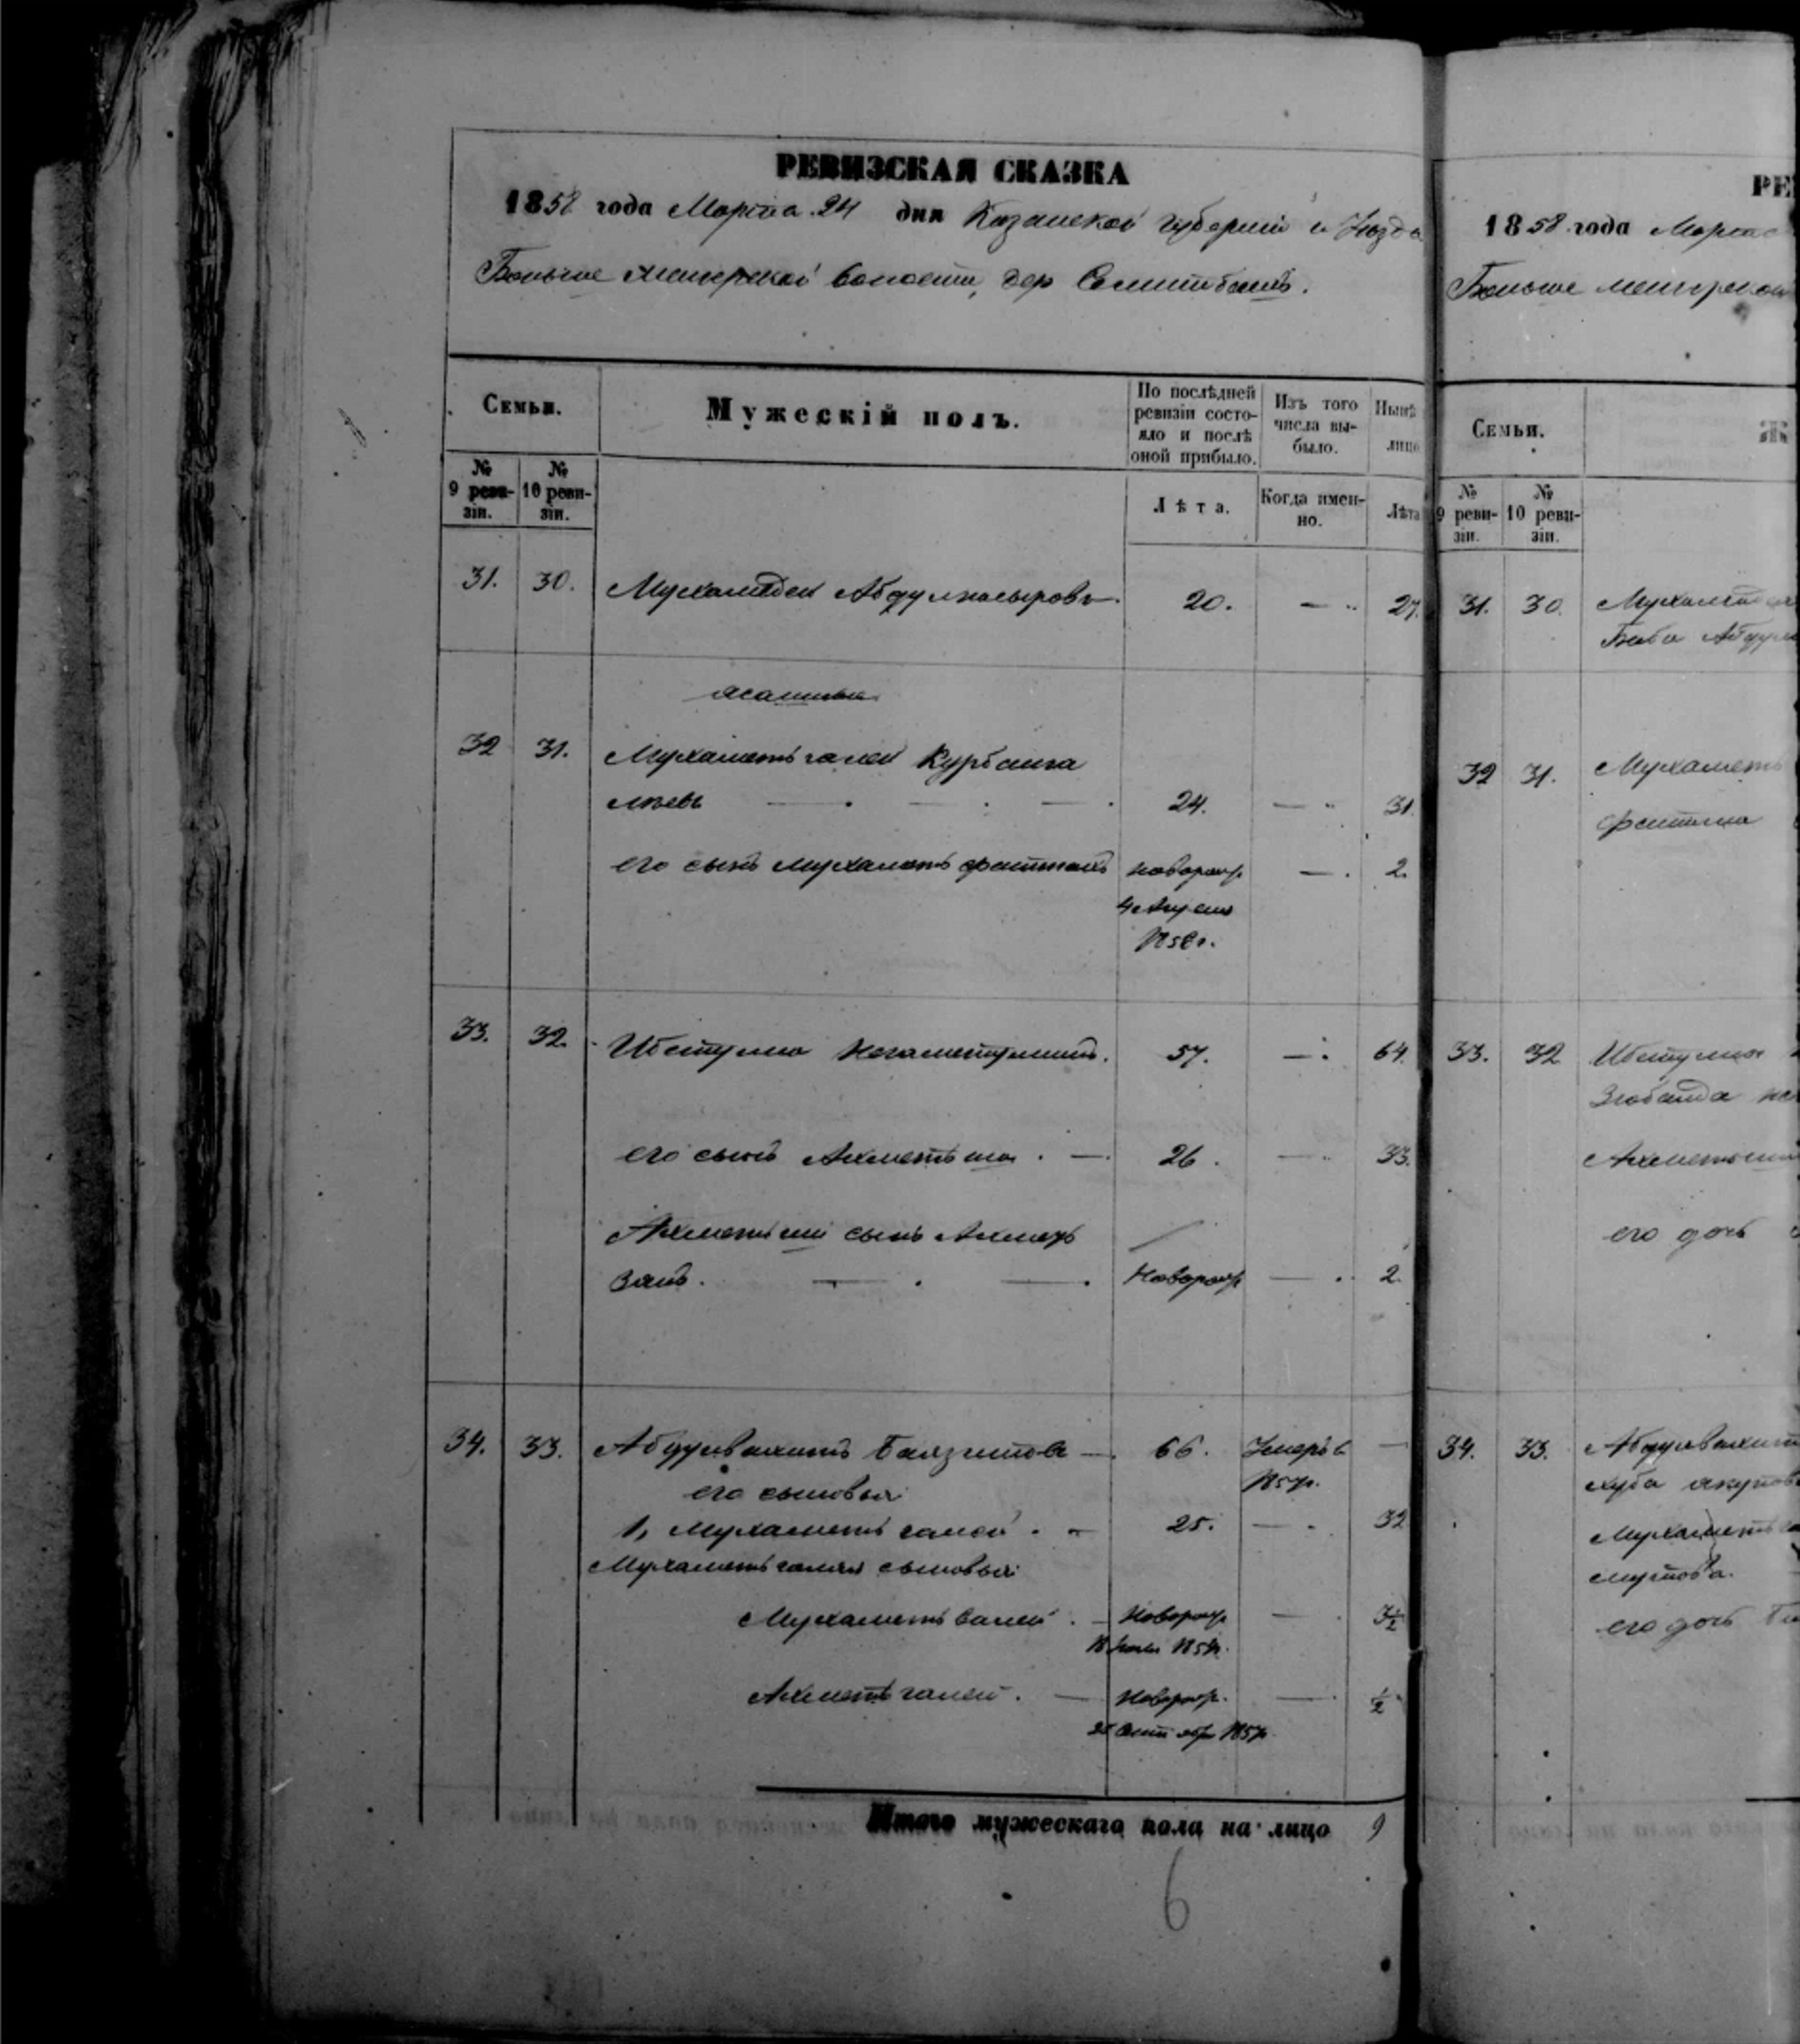 РЕВИЗСКАЯ СКАЗКА
1858 года Марта 24 дня Казанской губернии и Уезда
Больше Менгерской волости, дер Семитбашъ.
Семьи.
Мужескій полъ.
По послѣдней ревизіи состояло и послѣ оной прибыло.
Изъ того числа выбыло.
Нынѣ лицо
№ 9 ревизіи.
№ 10 ревизіи.
Лѣта.
Когда именно.
Лѣта
31. 30. Абдулнасыровъ 20. 27.
ясашные
32 31. Мухаметьгалей Курбанга
лѣевъ 24. 31.
его сынъ Мухаметь Новорож 2.
4 185 г.
33. 32. 57. 64.
его сынъ Ахметьша 26. 33.
Ахметьши сынъ Ахметь
зянъ. Новорож 2.
34. 33. Абдулвахитъ Баязитовъ 66. Умеръ в
его сыновья: 185 г.
1, Мухаметьгалей 25. 32
Мухаметьгалея сыновья:
Мухаметьвалей Новорож 3½
185 г.
Ахметьгалей. Новорож. ½
Сентября 1857 г.
Итого мужескаго пола на лицо 9
6
РЕ
1858 года Марта
Больше менгерской
Семьи. Ж
№ 9 ревизіи.
№ 10 ревизіи.
31. 30.
Абдул
32 31. Мухаметь
Фатима
33. 32
Зюбаида
Ахметьши
его дочь
34. 33. Абдулвахит
Мухаметьга
его дочь